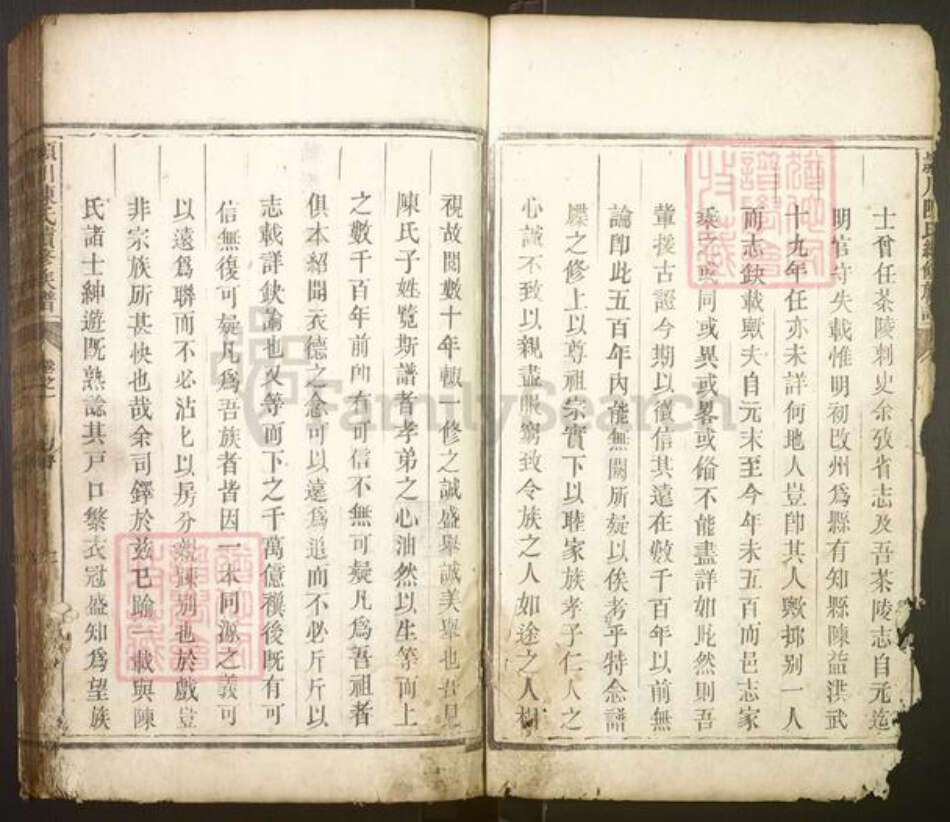 士曾任茶陵刺史余攷省志及吾茶陵志自元迄
明官守失載惟明初改州爲縣有知縣陳益洪武
十九年任亦未詳何地人豈卽其人歟抑別一人
而志缺載歟夫自元末至今年未五百而邑志家
乘或同或異或畧或偹不能盡詳如此然則吾
輩援古證今期以徵信其遠在數千百年以前無
論卽此五百年內能無闕所疑以俟考乎特念譜
牒之修上以尊祖宗實下以睦家族孝子仁人之
心誠不致以親盡服窮致令族之人如途之人相
視故閱數十年輙一修之誠盛舉誠美舉也吾見
陳氏子姓覽斯譜者孝弟之心油然以生等而上
之數千百年前卽有可信不無可疑凡爲吾祖者
俱本紹聞衣德之念可以遠爲追而不必斤斤以
志載詳缺論也又等而下之千萬億禩後旣有可
信無復可疑凡爲吾族者皆因一本同源之義可
以遠爲聯而不必沾匕以房分親疎別也於戲豈
非宗族所甚快也哉余司鐸於兹已踰一載與陳
氏諸士紳遊旣熟諗其戸口繁衣冠盛知爲望族
潁川陳氏續修族譜
卷之一
FamilySearch